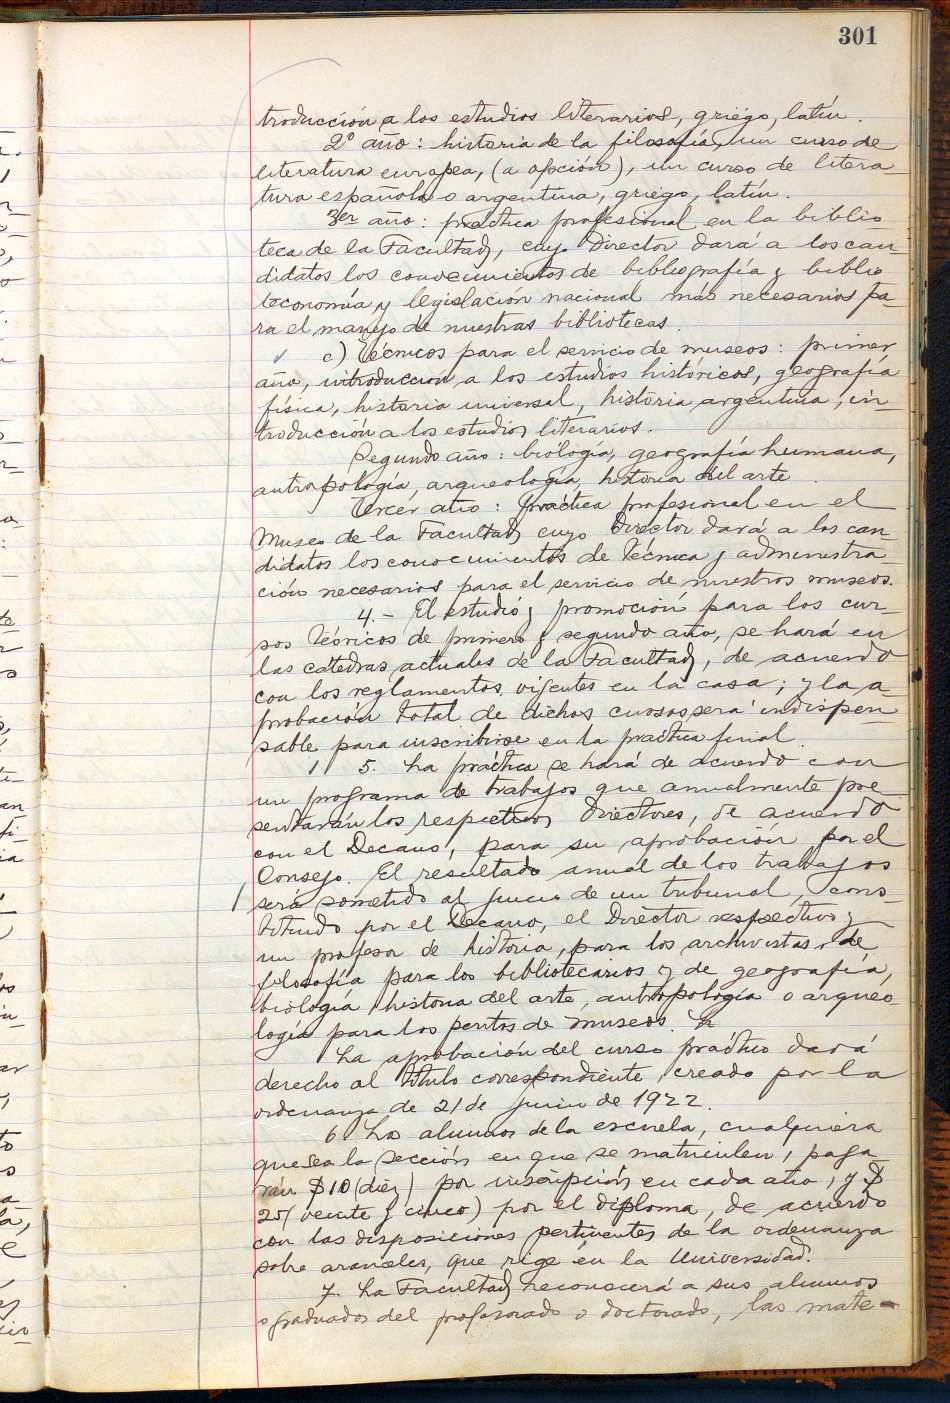 301
troducción a los estudios literarios, griego, latín.
2º año: historia de la filosofía, un curso de
literatura europea, (a opción), un curso de litera-
tura española o argentina, griego, latín.
3er año: práctica profesional en la biblio
teca de la Facultad, cuyo Director dará a los can-
didatos los conocimientos de bibliografía y biblio
teconomía y legislación nacional más necesarios pa-
ra el manejo de nuestras bibliotecas.
c) Técnicos para el servicio de museos: primer
año, introducción a los estudios históricos, geografía
física, historia universal, historia argentina, in-
troducción a los estudios literarios.
Segundo año: biología, geografía humana,
antropología, arqueología, historia del arte.
Tercer año: práctica profesional en el
Museo de la Facultad cuyo Director dará a los can-
didatos los conocimientos de técnica y administra
ción necesarios para el servicio de nuestros museos.
4.- El estudio y promoción para los cur-
sos teóricos de primero y segundo año, se hará en
las cátedras actuales de la Facultad, de acuerdo
con los reglamentos vigentes en la casa; y la a-
probación total de dichos cursos será indispen
sable para inscribirse en la práctica final.
5. La práctica se hará de acuerdo con
un programa de trabajos que anualmente pre
sentarán los respectivos Directores, de acuerdo
con el Decano, para su aprobación por el
Consejo. El resultado anual de los trabajos
será sometido al juicio de un tribunal, cons-
tituido por el Decano, el Director respectivo y
un profesor de historia, para los archivistas, de
filosofía para los bibliotecarios y de geografía,
biología historia del arte, antropología o arqueo
logía para los peritos de museos.
La aprobación del curso práctico dará
derecho al título correspondiente creado por la
ordenanza de 21 de Junio de 1922.
6 Los alumnos de la escuela, cualquiera
que sea la sección en que se matriculen, paga
rán $10 (diez) por inscripción en cada año, y $
25 (veinte y cinco) por el diploma, de acuerdo
con las disposiciones pertinentes de la ordenanza
sobre aranceles, que rige en la Universidad.
7. La Facultad reconocerá a sus alumnos
o graduados del profesorado o doctorado, las mate-